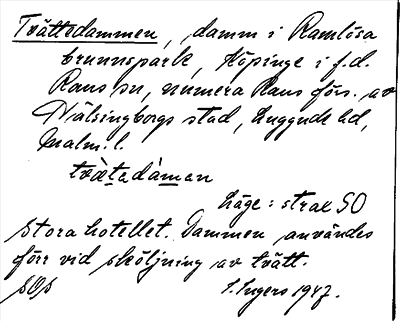 Tvättsdammen, damm i Ramlösa
brunnspark, Köpinge i f.d.
Raus sn, numera Raus förs. av
Hälsingborgs stad, Luggude hd,
Malm. l.
tvä̀tₑdàmen
Läge: strax SO
Stora hotellet. Dammen användes
förr vid sköljning av tvätt.
S. Ingers 1947.